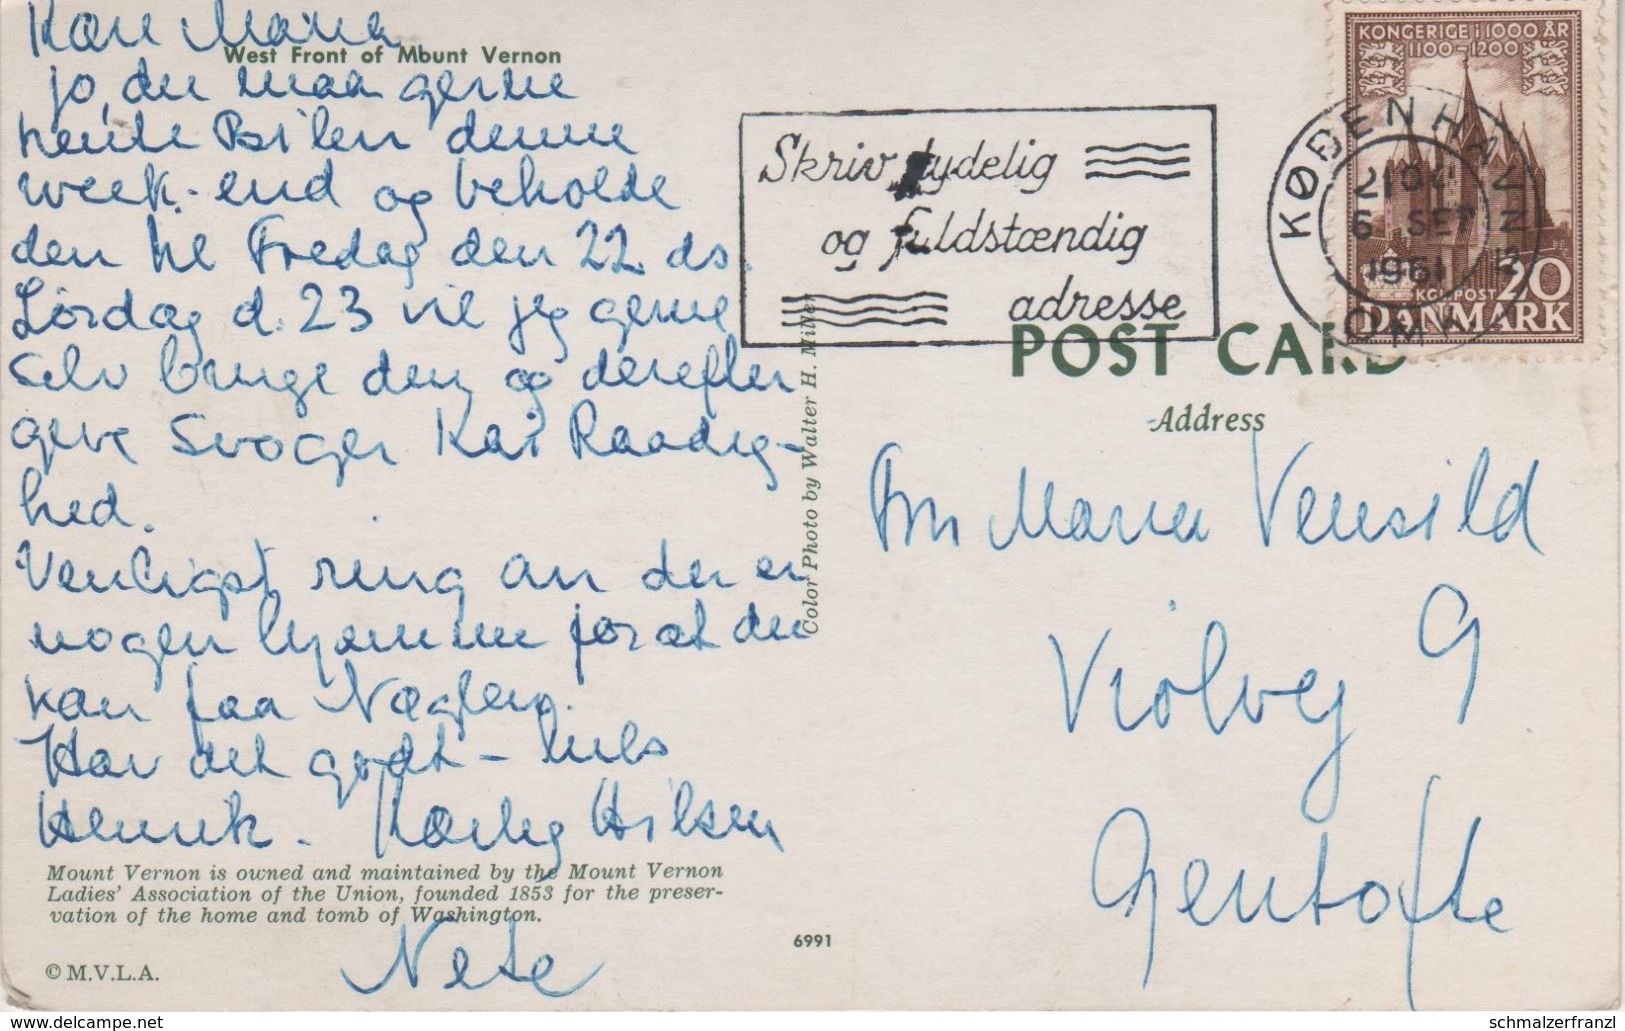 West Front of Mount Vernon
Kære Maria,
jo, du maa gerne
hente Bilen denne
week-end og beholde
den til Fredag den 22 ds.
Lørdag d. 23 vil jeg gerne
selv bruge den og derefter
give Svoger Kai Raadig-
hed.
Venligst ring an der er
nogen hjemme for at du
kan faa Nøglen.
Hav det godt – hils
Henrik. Kærlig Hilsen
Nete
Mount Vernon is owned and maintained by the Mount Vernon
Ladies' Association of the Union, founded 1853 for the preser-
vation of the home and tomb of Washington.
© M.V.L.A.
6991
Color Photo by Walter H. Miller
Skriv tydelig
og fuldstændig
adresse
KONGERIGE i 1000 ÅR
1100-1200
KGL POST 20
DANMARK
KØBENHAVN
OMK
6. SEP
1961
POST CARD
Address
Fru Maria Vensild
Violvej 9
Gentofte
www.delcampe.net
schmalzerfranzl